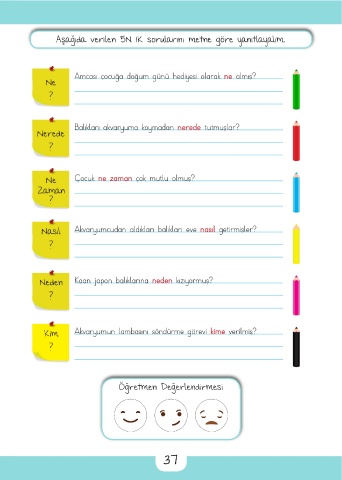 Aşağıda verilen 5N 1K sorularını metne göre yanıtlayalım.
Ne
?
Amcası çocuğa doğum günü hediyesi olarak ne almış?
Nerede
?
Balıkları akvaryuma koymadan nerede tutmuşlar?
Ne
Zaman
?
Çocuk ne zaman çok mutlu olmuş?
Nasıl
?
Akvaryumcudan aldıkları balıkları eve nasıl getirmişler?
Neden
?
Kaan japon balıklarına neden kızıyormuş?
Kim
?
Akvaryumun lambasını söndürme görevi kime verilmiş?
Öğretmen Değerlendirmesi
37